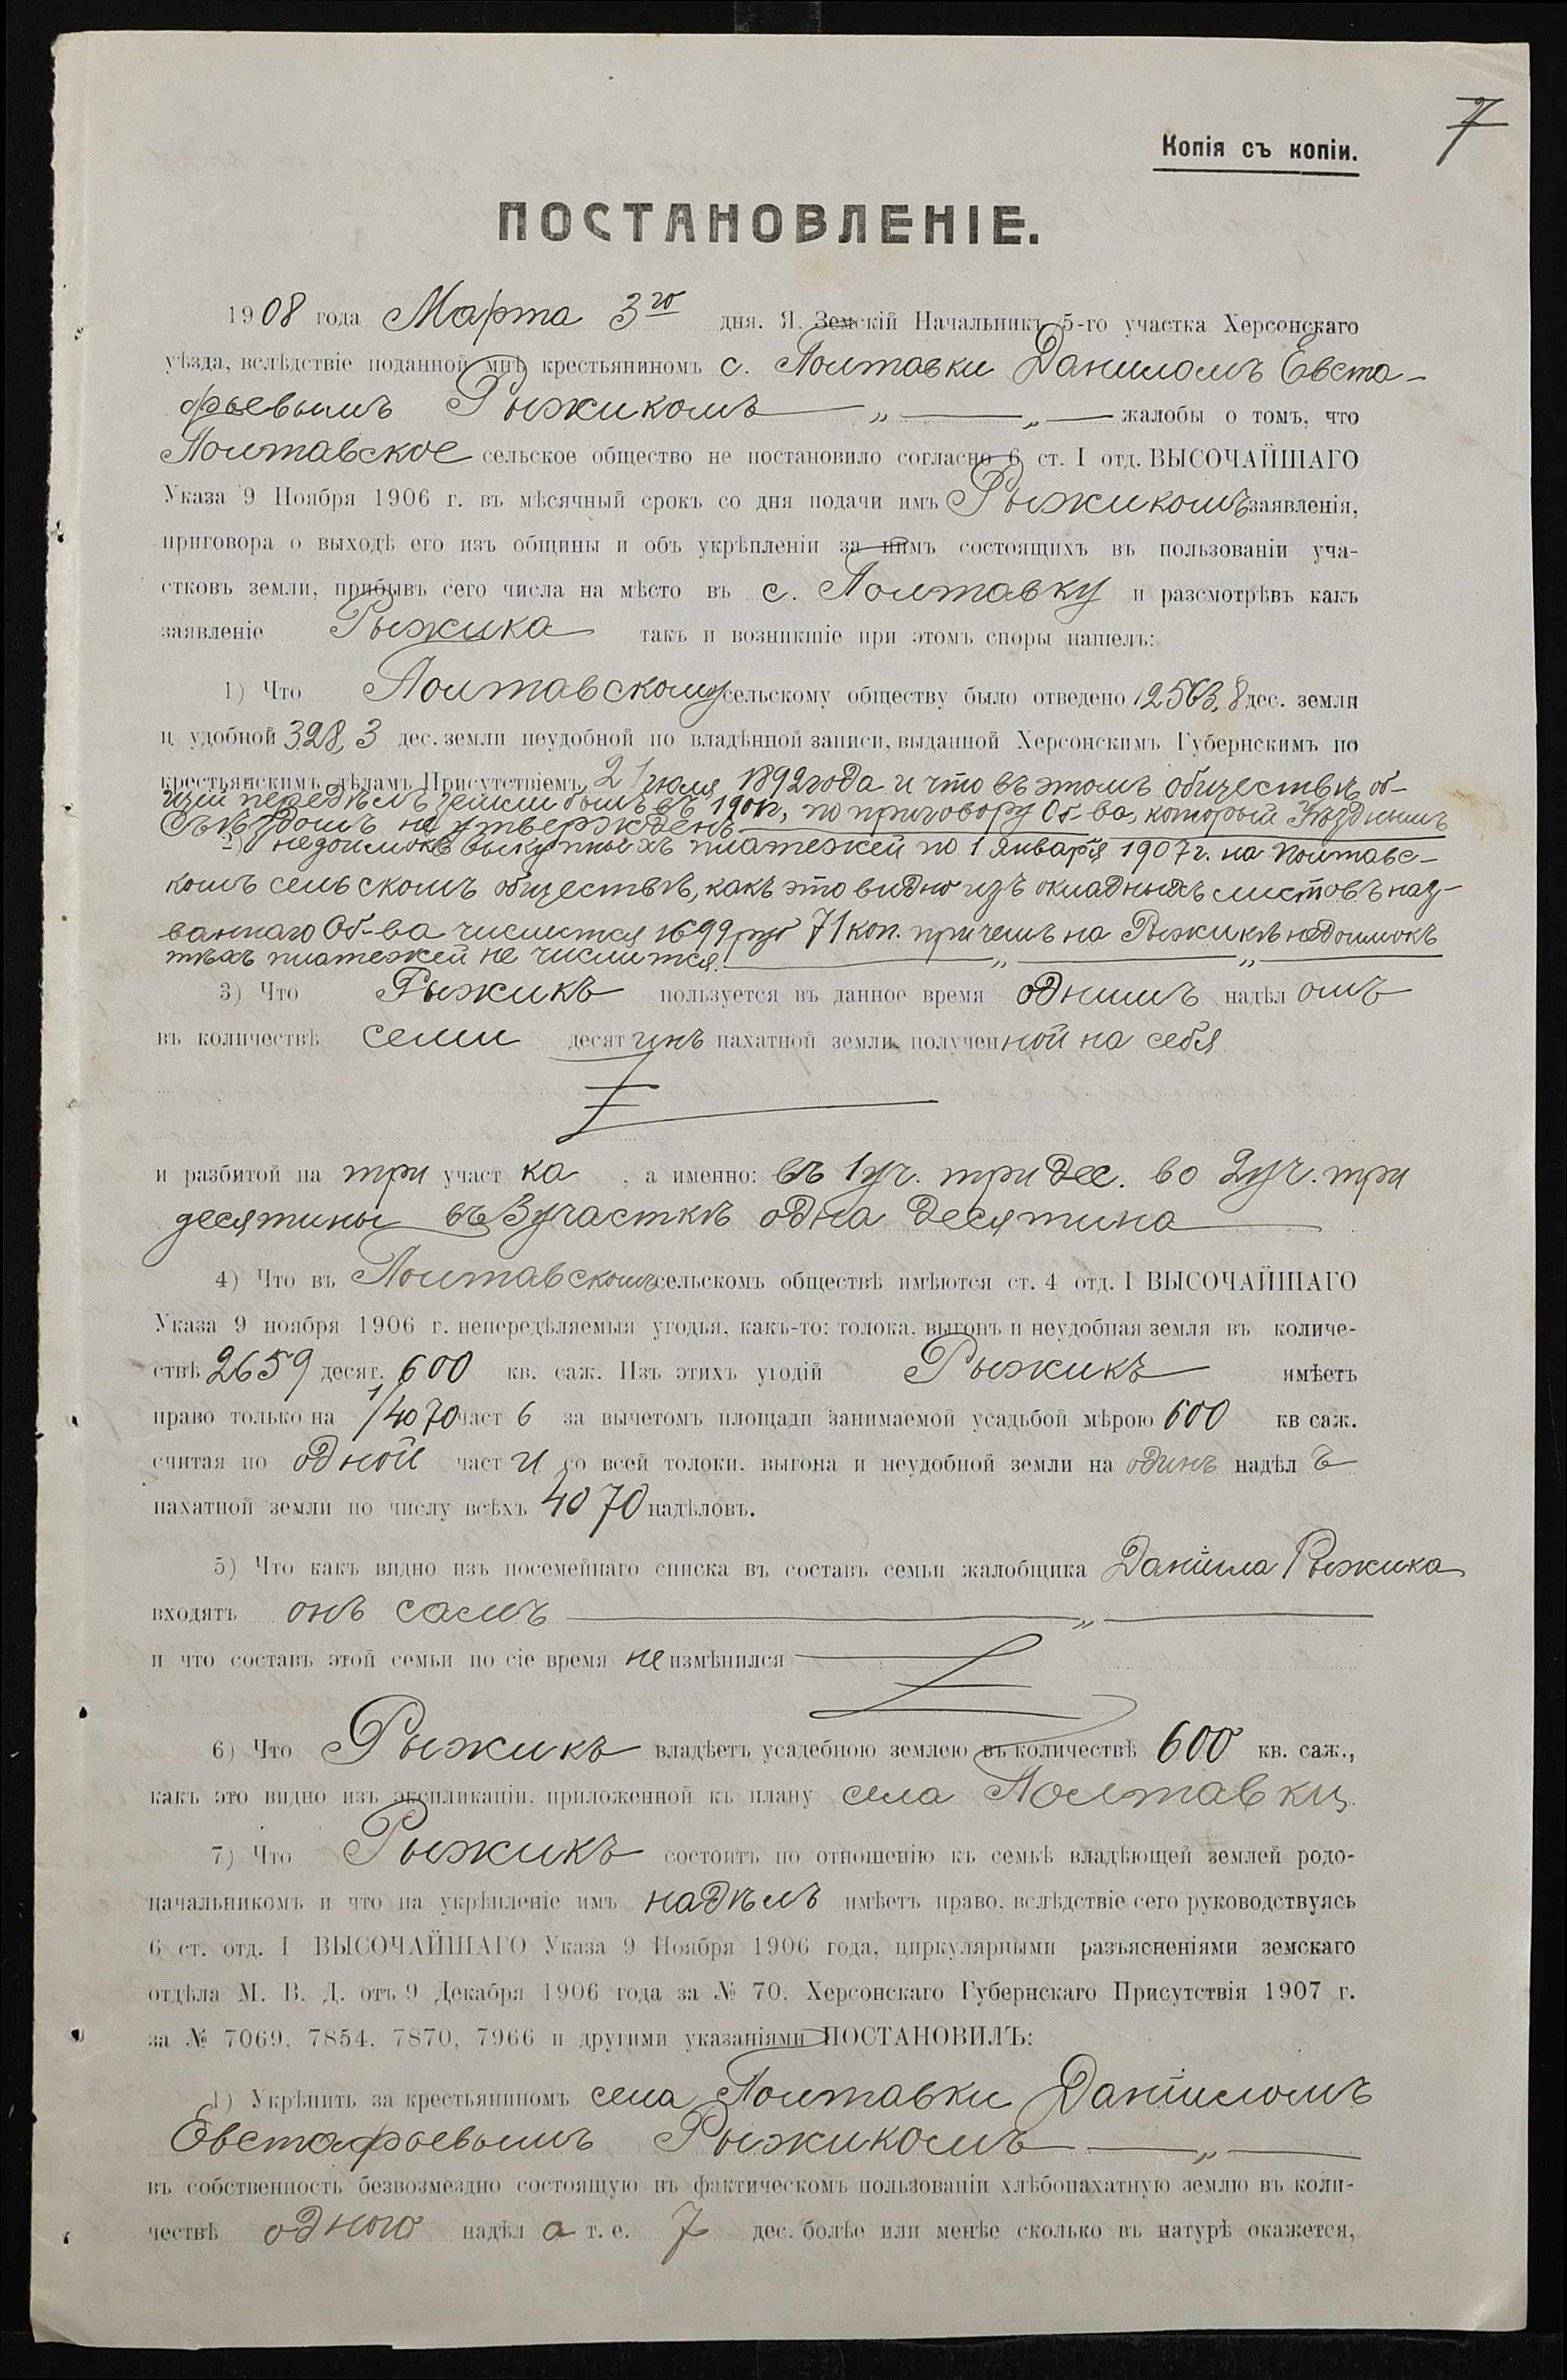 7
Копія съ копіи.
ПОСТАНОВЛЕНІЕ.
1908 года Марта 3го дня. Я. Земскій Начальникъ 5-го участка Херсонскаго
уѣзда, вслѣдствіе поданной мнѣ крестьяниномъ с. Полтавки Даниломъ Евста-
фьевымъ Рыжикомъ — „ — „ — жалобы о томъ, что
Полтавское сельское общество не постановило согласно 6 ст. I отд. ВЫСОЧАЙШАГО
Указа 9 Ноября 1906 г. въ мѣсячный срокъ со дня подачи имъ Рыжикомъ заявленія,
приговора о выходѣ его изъ общины и объ укрѣпленіи за нимъ состоящихъ въ пользованіи уча-
стковъ земли, прибывъ сего числа на мѣсто въ с. Полтавку и разсмотрѣвъ какъ
заявленіе Рыжика такъ и возникшіе при этомъ споры нашелъ:
1) Что Полтавскому сельскому обществу было отведено 12563,8 дес. земли
и удобной 328,3 дес. земли неудобной по владѣнной записи, выданной Херсонскимъ Губернскимъ по
крестьянскимъ дѣламъ Присутствіемъ 21 юля 1892 года и что въ этомъ обществѣ об-
щій передѣлъ земли былъ въ по приговору Об-ва, который Уѣзднымъ
Съѣздомъ не утвержденъ
2) недоимокъ выкупныхъ платежей по 1 Января 1907 г. на Полтавс-
комъ сельскомъ обществѣ, какъ это видно изъ окладныхъ листовъ наз-
ваннаго Об-ва числится 1699 руб 71 коп. причемъ на Рыжикѣ недоимокъ
тѣхъ платежей не числится. — „ — „ —
3) Что Рыжикъ пользуется въ данное время однимъ надѣломъ
въ количествѣ семи десятинъ пахатной земли полученной на себя
и разбитой на три участка, а именно: въ 1 уч. три дес. во 2 уч. три
десятины въ 3 участкѣ одна десятина
4) Что въ Полтавскомъ сельскомъ обществѣ имѣются ст. 4 отд. I ВЫСОЧАЙШАГО
Указа 9 ноября 1906 г. непередѣляемыя угодья, какъ-то: толока, выгонъ и неудобная земля въ количе-
ствѣ 2659 десят. 600 кв. саж. Изъ этихъ угодій Рыжикъ имѣетъ
право только на 1/4070 часть за вычетомъ площади занимаемой усадьбой мѣрою 600 кв саж.
считая по одной части со всей толоки, выгона и неудобной земли на одинъ надѣлъ
пахатной земли по числу всѣхъ 4070 надѣловъ.
5) Что какъ видно изъ посемейнаго списка въ составъ семьи жалобщика Даніила Рыжика
входятъ онъ самъ — „ —
и что составъ этой семьи по сіе время не измѣнился
6) Что Рыжикъ владѣетъ усадебною землею въ количествѣ 600 кв. саж.,
какъ это видно изъ экспликаціи, приложенной къ плану села Полтавки.
7) Что Рыжикъ состоитъ по отношенію къ семьѣ владѣющей землей родо-
начальникомъ и что на укрѣпленіе имъ надѣлъ имѣетъ право, вслѣдствіе сего руководствуясь
6 ст. отд. I ВЫСОЧАЙШАГО Указа 9 Ноября 1906 года, циркулярными разъясненіями земскаго
отдѣла М. В. Д. отъ 9 Декабря 1906 года за № 70, Херсонскаго Губернскаго Присутствія 1907 г.
за № 7069, 7854, 7870, 7966 и другими указаніями ПОСТАНОВИЛЪ:
1) Укрѣпить за крестьяниномъ села Полтавки Даніиломъ
Евстафьевымъ Рыжикомъ — „ —
въ собственность безвозмездно состоящую въ фактическомъ пользованіи хлѣбопахатную землю въ коли-
чествѣ одного надѣла т. е. 7 дес. болѣе или менѣе сколько въ натурѣ окажется,